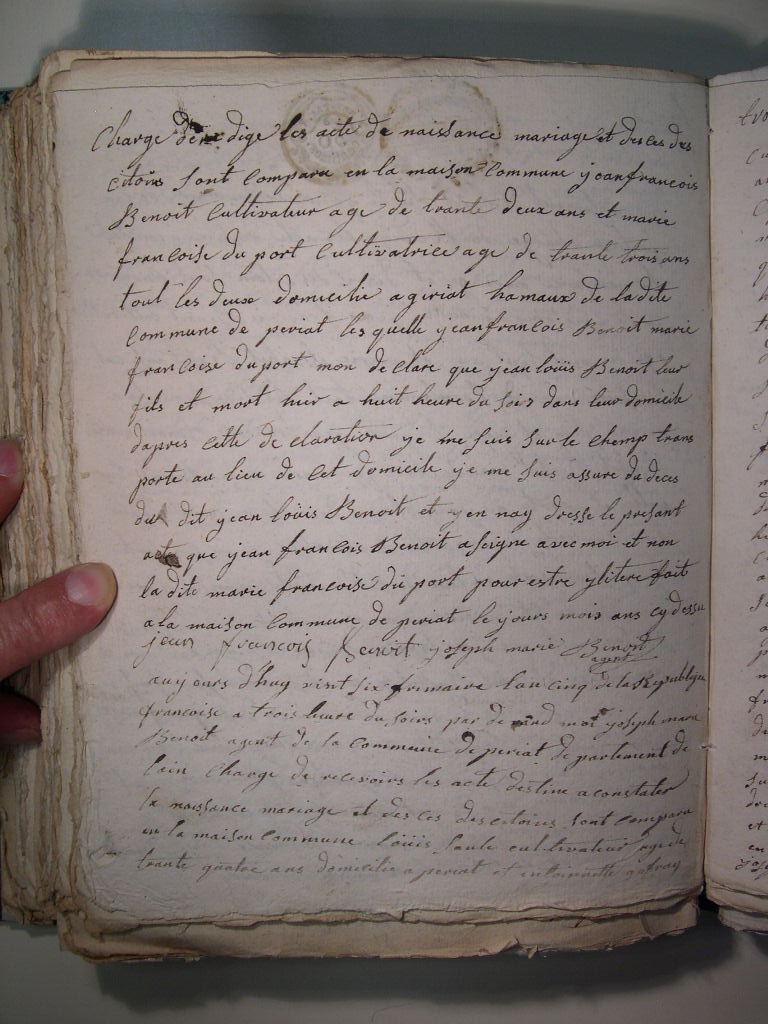 charge de redige les acte de naissance mariage et desces des
citoiis sont compara en la maison commune jean francois
Benoit cultivateur age de trante deux ans et marie
francoise du port cultivatrice age de trante trois ans
tout les deux domicilie a giriat hamaux de la dite
commune de periat les quelle jean francois Benoit marie
francoise du port mon de clare que jean loüis Benoit leur
fils et mort hier a huit heure du soir dans leur domicile
dapres cette de claration je me suis sur le chemp trans
porte au lieu de cet domicile je me suis assure du deces
du dit jean loüis Benoit et jen nay dresse le presant
acte que jean francois Benoit a seigne avec moi et non
la dite marie francoise du port pour estre ylitere fait
a la maison commune de periat le jours mois ans cy dessu
jean francois Benoit joseph marie Benoit
agent
aujours dhuy vint six frimaire lan cinq de la Republique
francoise a trois heure du soirs par de vand moi joseph marie
Benoit agent de la commune de periat de partement de
lain charge de recevoirs les acte destine a constater
la naissance mariage et desces des citoiies sont compara
en la maison commune loüis cultivateur age de
trante quatre ans domicilie a periat et